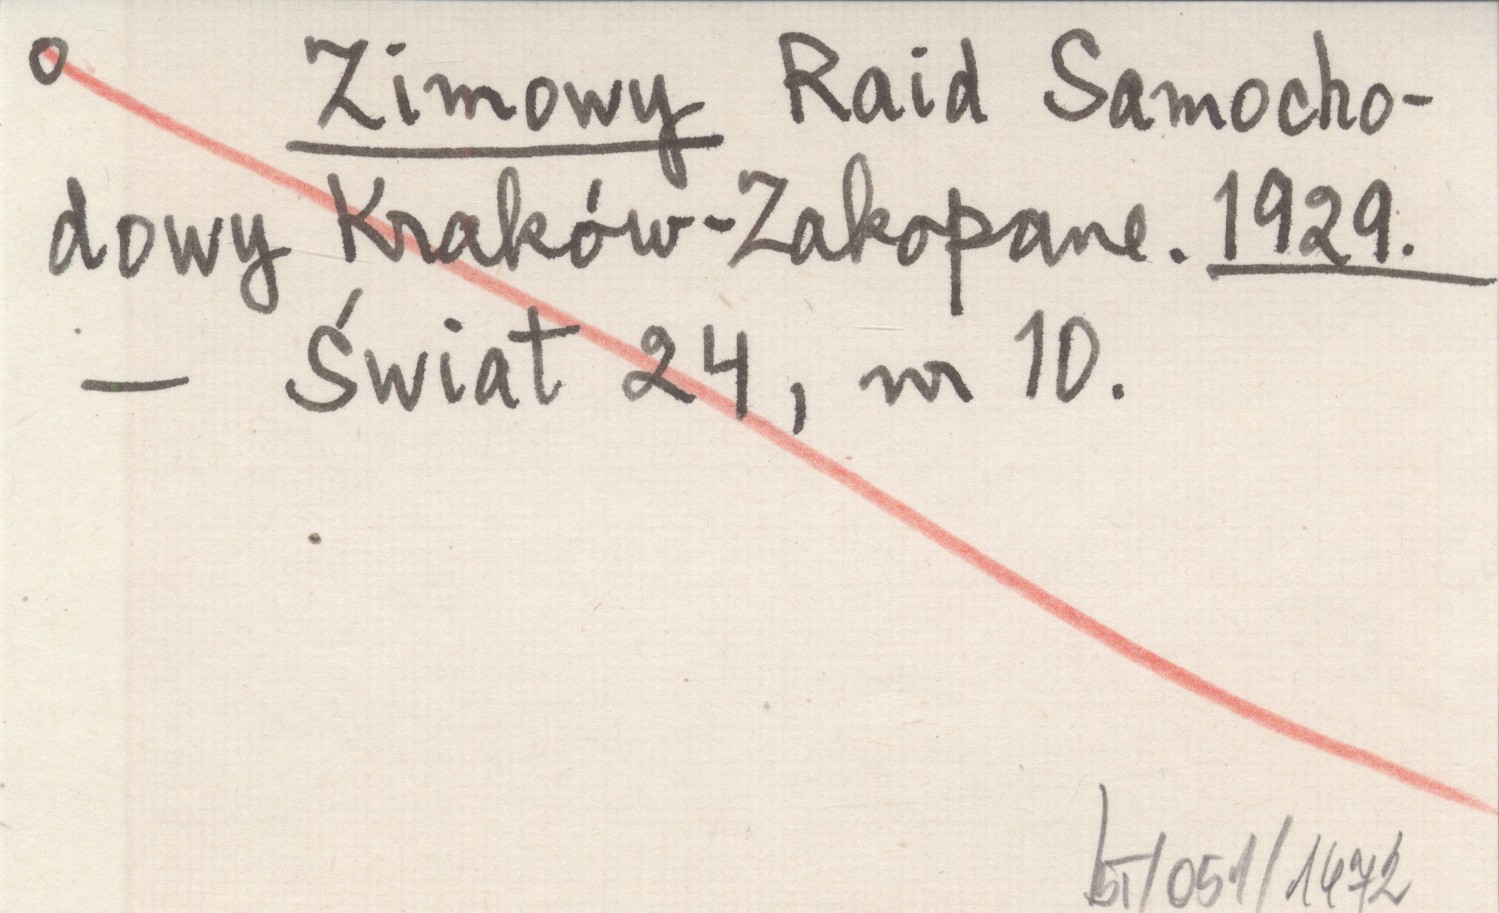 o Zimowy Raid Samocho-
dowy Kraków-Zakopane. 1929.
— Świat 24, nr 10.
/051/1472